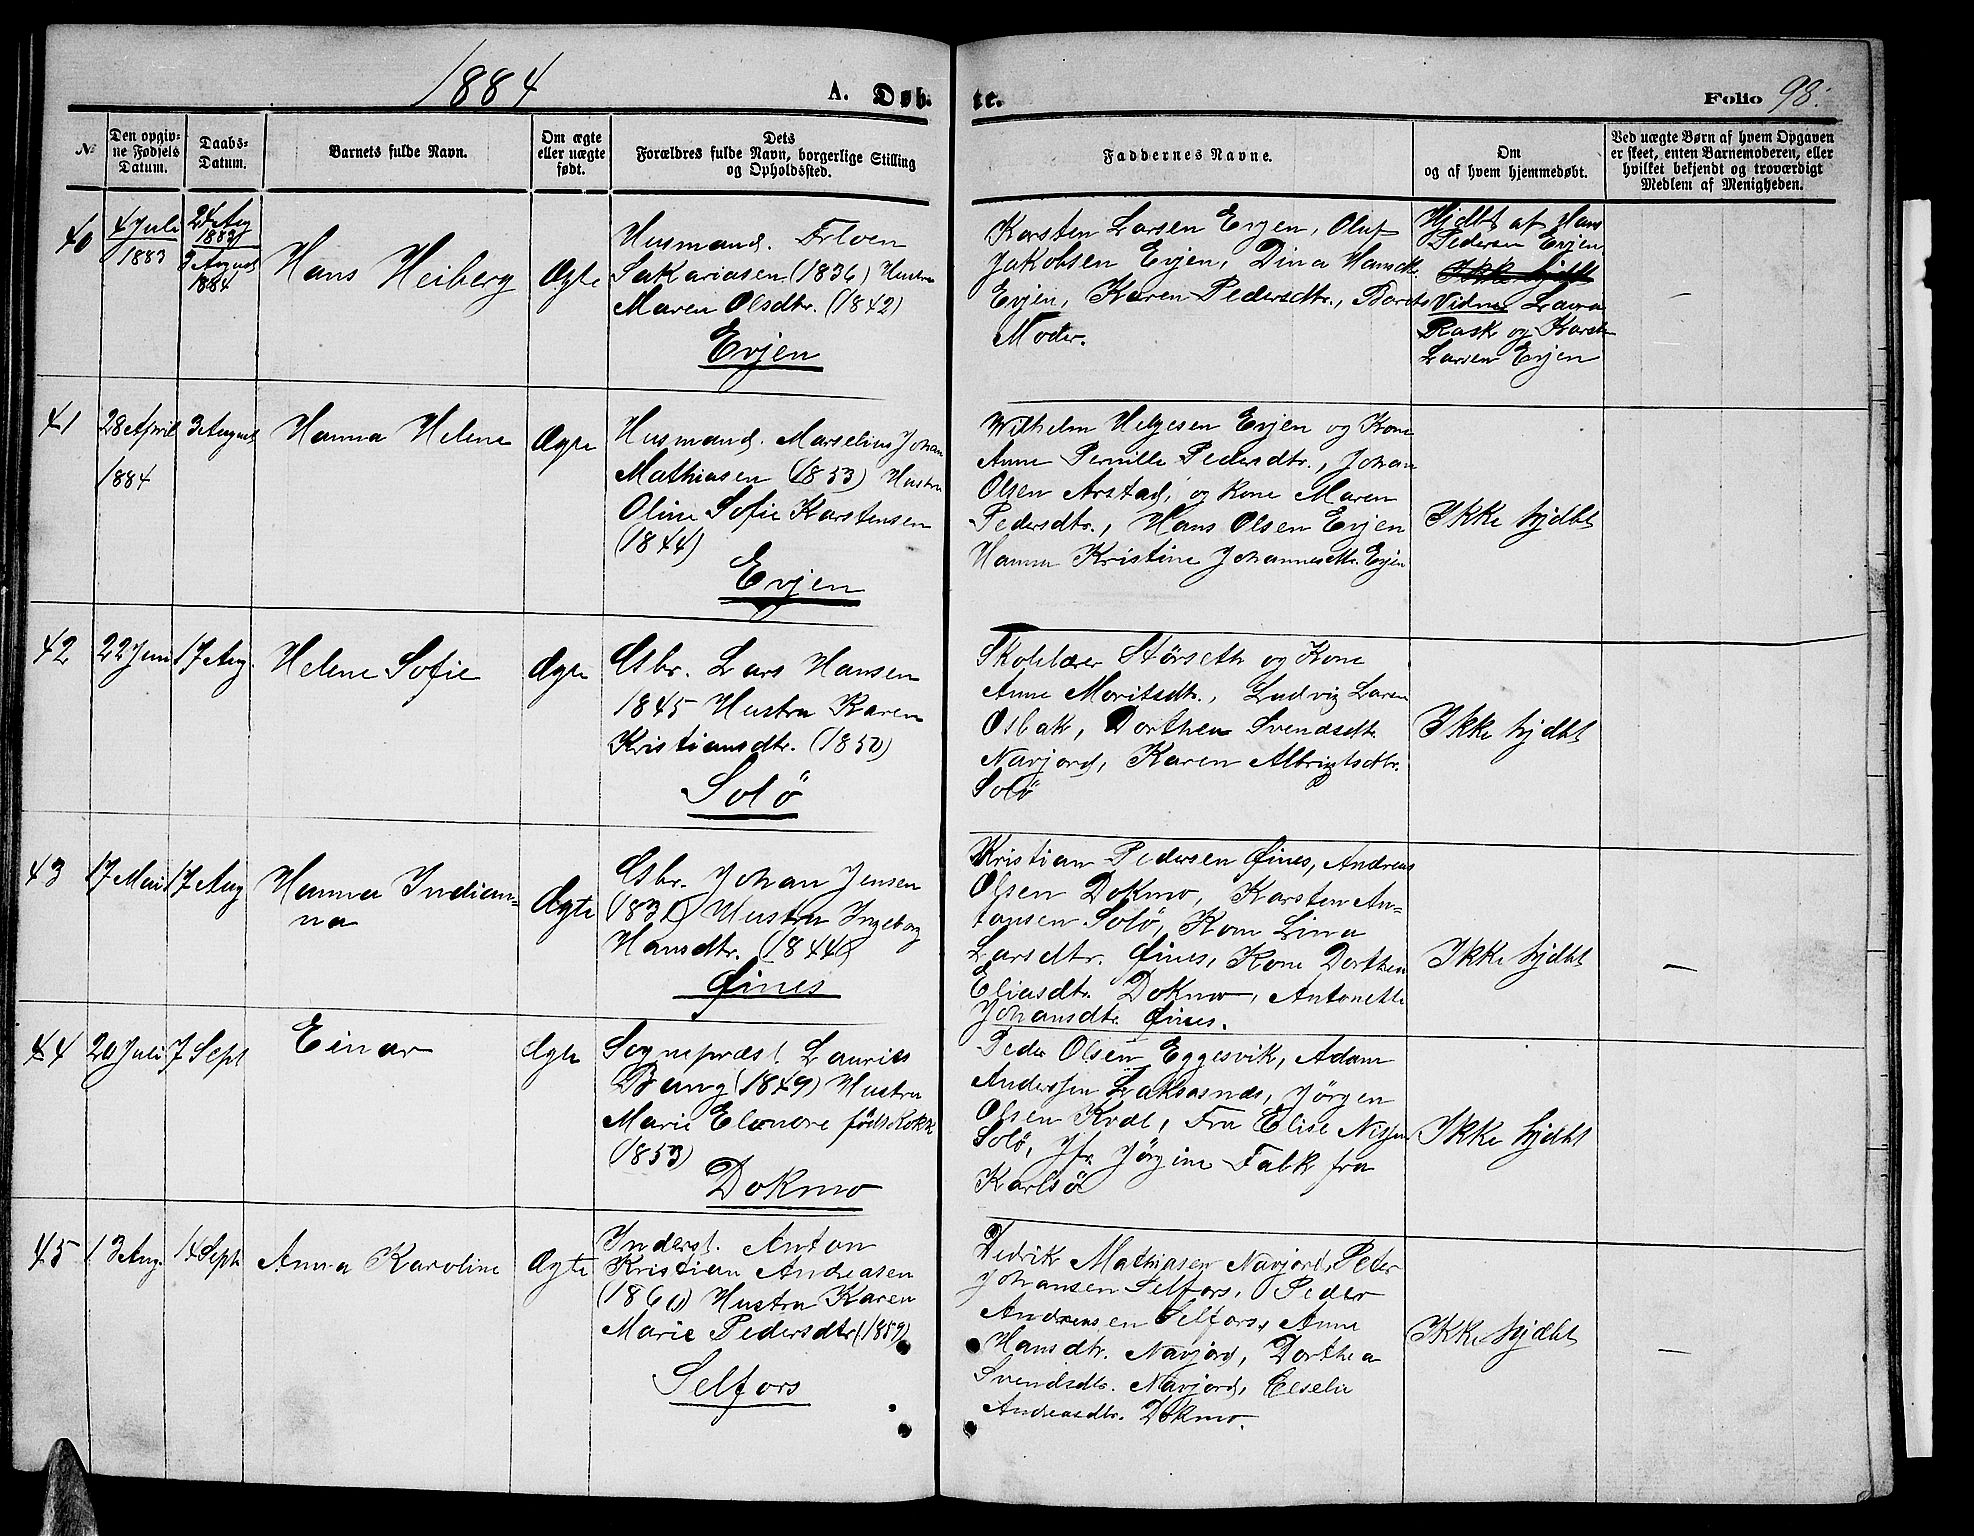 1884
A. Døbte.
Folio 98.
№
Den opgiv-
ne Fødsels
Datum.
Daabs-
Datum.
Barnets fulde Navn.
Om ægte
eller uægte
født.
Dets
Forældres fulde Navn, borgerlige Stilling
og Opholdssted.
Faddernes Navne.
Om
og af hvem hjemmedøbt.
Ved uægte Børn af hvem Opgaven
er skeet, enten Barnemoderen, eller
hvilket bekjendt og troværdigt
Medlem af Menigheden.
40
4 Juli
1883
24 Aug
1883
3 August
1884
Hans Heiberg
Ægte
Husmand.
Sakariasen (1836) Hustru
Maren Olsdtr. (1842)
Evjen
Karsten Larsen Evjen, Oluf
Jakobsen Evjen, Dina Hansdtr.
Evjen, Karen Pedersdtr., Barnets
Moder.
Hjdbt af Hans
Pedersen Evjen
Ikke hjdbt
Vidner Laura
Rask og Karsten
Larsen Evjen
—
41
28 April
1884
3 August
Hanna Helene
Ægte
Husmand. Marselius Johan
Mathiasen (1853) Hustru
Oline Sofie Karstensen
(1844)
Evjen
Wilhelm Helgesen Evjen og Kone
Anne Pernille Pedersdtr., Johan
Olsen Arstad, og Kone Maren
Pedersdtr., Hans Olsen Evjen
Hanna Kristine Johannesdtr. Evjen
Ikke hjdbt
42
22 Juni
17 Aug.
Helene Sofie
Ægte
Gsbr. Lars Hansen
1845 Hustru Karen
Kristiansdtr. (1850)
Solö
Skolelærer Störseth og Kone
Anne Moritsdtr., Ludvig Larsen
Osbak, Dorthea Svendsdtr.
Navjord, Karen Albrigtsdtr.
Solö
Ikke hjdbt
43
17 Mai
17 Aug
Hanna Indian-
na
Ægte
Gsbr. Johan Jensen
Hustru Ingeborg
Hansdtr. (1844)
Øines
Kristian Pedersen Øines, Andreas
Olsen Dokmo, Karsten An-
tonsen Solö, Kone Lina
Larsdtr. Øines, Kone Dorthea
Eliasdtr. Dokmo, Antonette
Johansdtr. Øines.
Ikke hjdbt
—
44
20 Juli
7 Sept
Einar
Ægte
Sognepræst. Laurits
Bang (1849) Hustru
Marie Elenore föds Kokk
(1853)
Dokmo
Peder Olsen Eggesvik, Adam
Andersen Laksosnæs, Jörgen
Olsen Kval, Fru Elise Nissen
Solö, Jfr Jörgine Falk fra
Karlsö
Ikke hjdbt
45
13 Aug.
14 Sept.
Anna Karoline
Ægte
Inderst. Anton
Kristian Andreasen
(1860) Hustru Karen
Marie Pedersdtr (1859)
Selfors
Fedrik Mathiasen Navjord, Peder
Johansen Selfors, Peder
Andreasen Selfors, Anne
Hansdtr. Navjord, Dorthea
Svendsdtr. Navjord, Elselie
Andreasdtr. Dokmo.
Ikke hjdbt
—